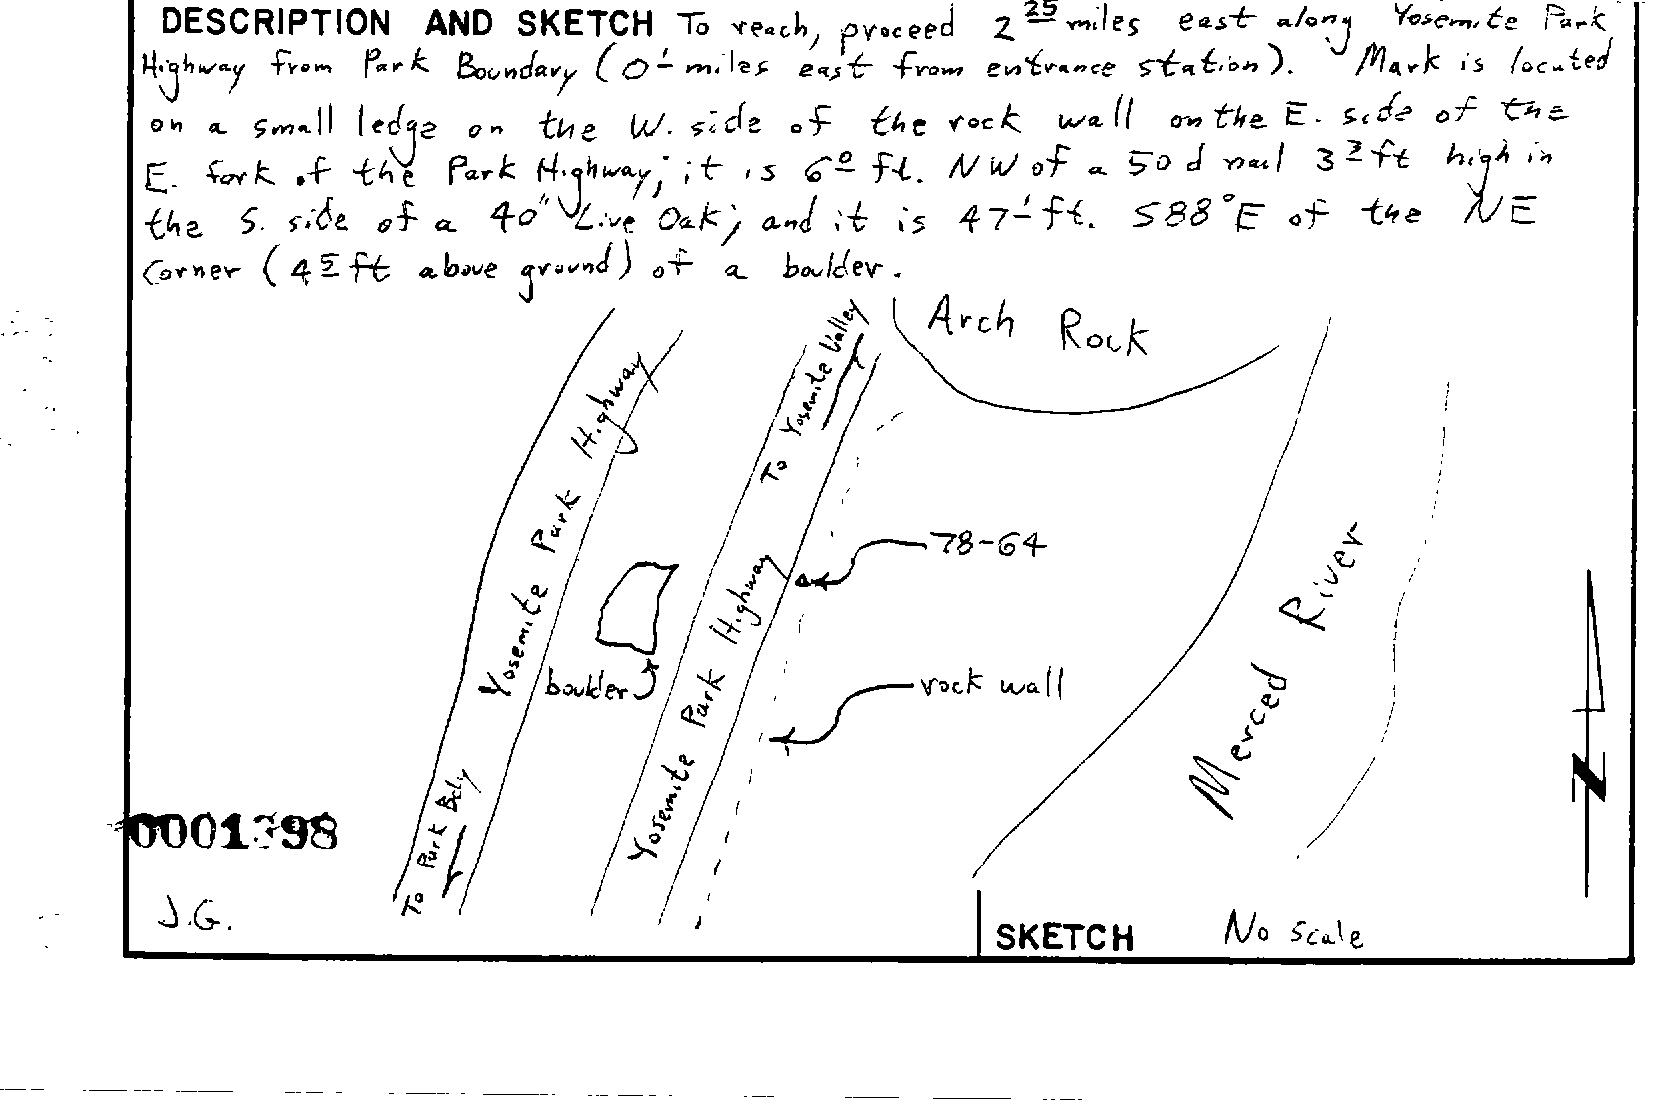 DESCRIPTION AND SKETCH To reach, proceed 2 25 miles east along Yosemite Park
Highway from Park Boundary (0 1 miles east from entrance station). Mark is located
on a small ledge on the W. side of the rock wall on the E. side of the
E. fork of the Park Highway; it is 6 0 ft. NW of a 50 d nail 3 ft high in
the S. side of a 40" Live Oak; and it is 47 1 ft. S88°E of the NE
Corner (4 5 ft above ground) of a boulder.
Arch Rock
Yosemite Park Highway
To Yosemite Valley
78-64
boulder
Yosemite Park Highway
rock wall
Merced River
N
To Park Bdy
J.G.
SKETCH No scale